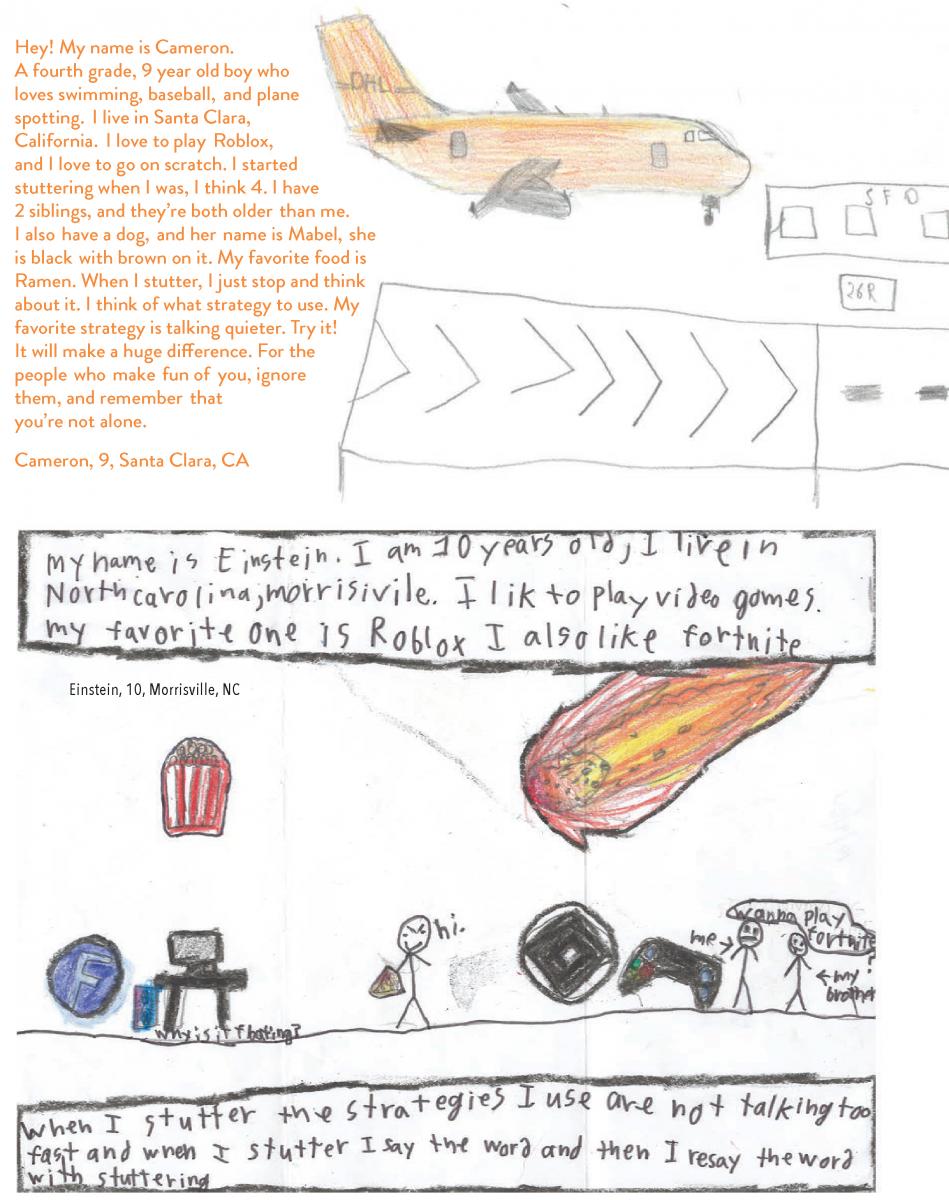 Hey! My name is Cameron.
A fourth grade, 9 year old boy who
loves swimming, baseball, and plane
spotting. I live in Santa Clara,
California. I love to play Roblox,
and I love to go on scratch. I started
stuttering when I was, I think 4. I have
2 siblings, and they're both older than me.
I also have a dog, and her name is Mabel, she
is black with brown on it. My favorite food is
Ramen. When I stutter, I just stop and think
about it. I think of what strategy to use. My
favorite strategy is talking quieter. Try it!
It will make a huge difference. For the
people who make fun of you, ignore
them, and remember that
you're not alone.
Cameron, 9, Santa Clara, CA
DHL
SFO
26R
my name is Einstein. I am 10 years old, I live in
North carolina, morrisivile. I lik to play video gomes.
my favorite one is Roblox I also like fortnite
Einstein, 10, Morrisville, NC
F
why is it floating?
hi.
me
wanna play
fortnite
?
my
brother
when I stutter the strategies I use are not talking too
fast and when I stutter I say the word and then I resay the word
with stuttering